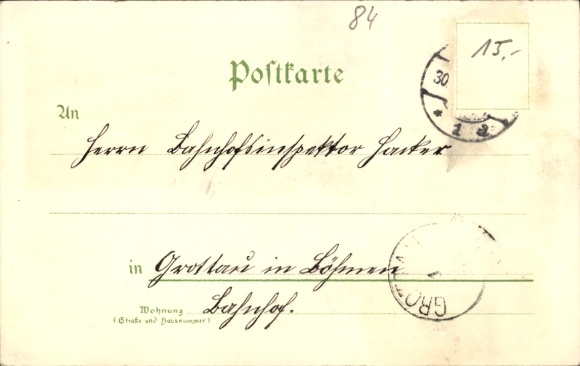 84
15,-
Postkarte
30
* 1 a
An
Herrn Bahnhofsinspektor Hacker
in Grottau in Böhmen
GROT
Wohnung
(Straße und Hausnummer)
Bahnhof.